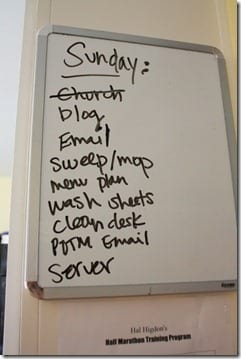 Sunday:
Church
blog
Email
Sweep/mop
menu plan
wash sheets
clean desk
PDTM Email
Server
Hal Higdon's
Half Marathon Training Program